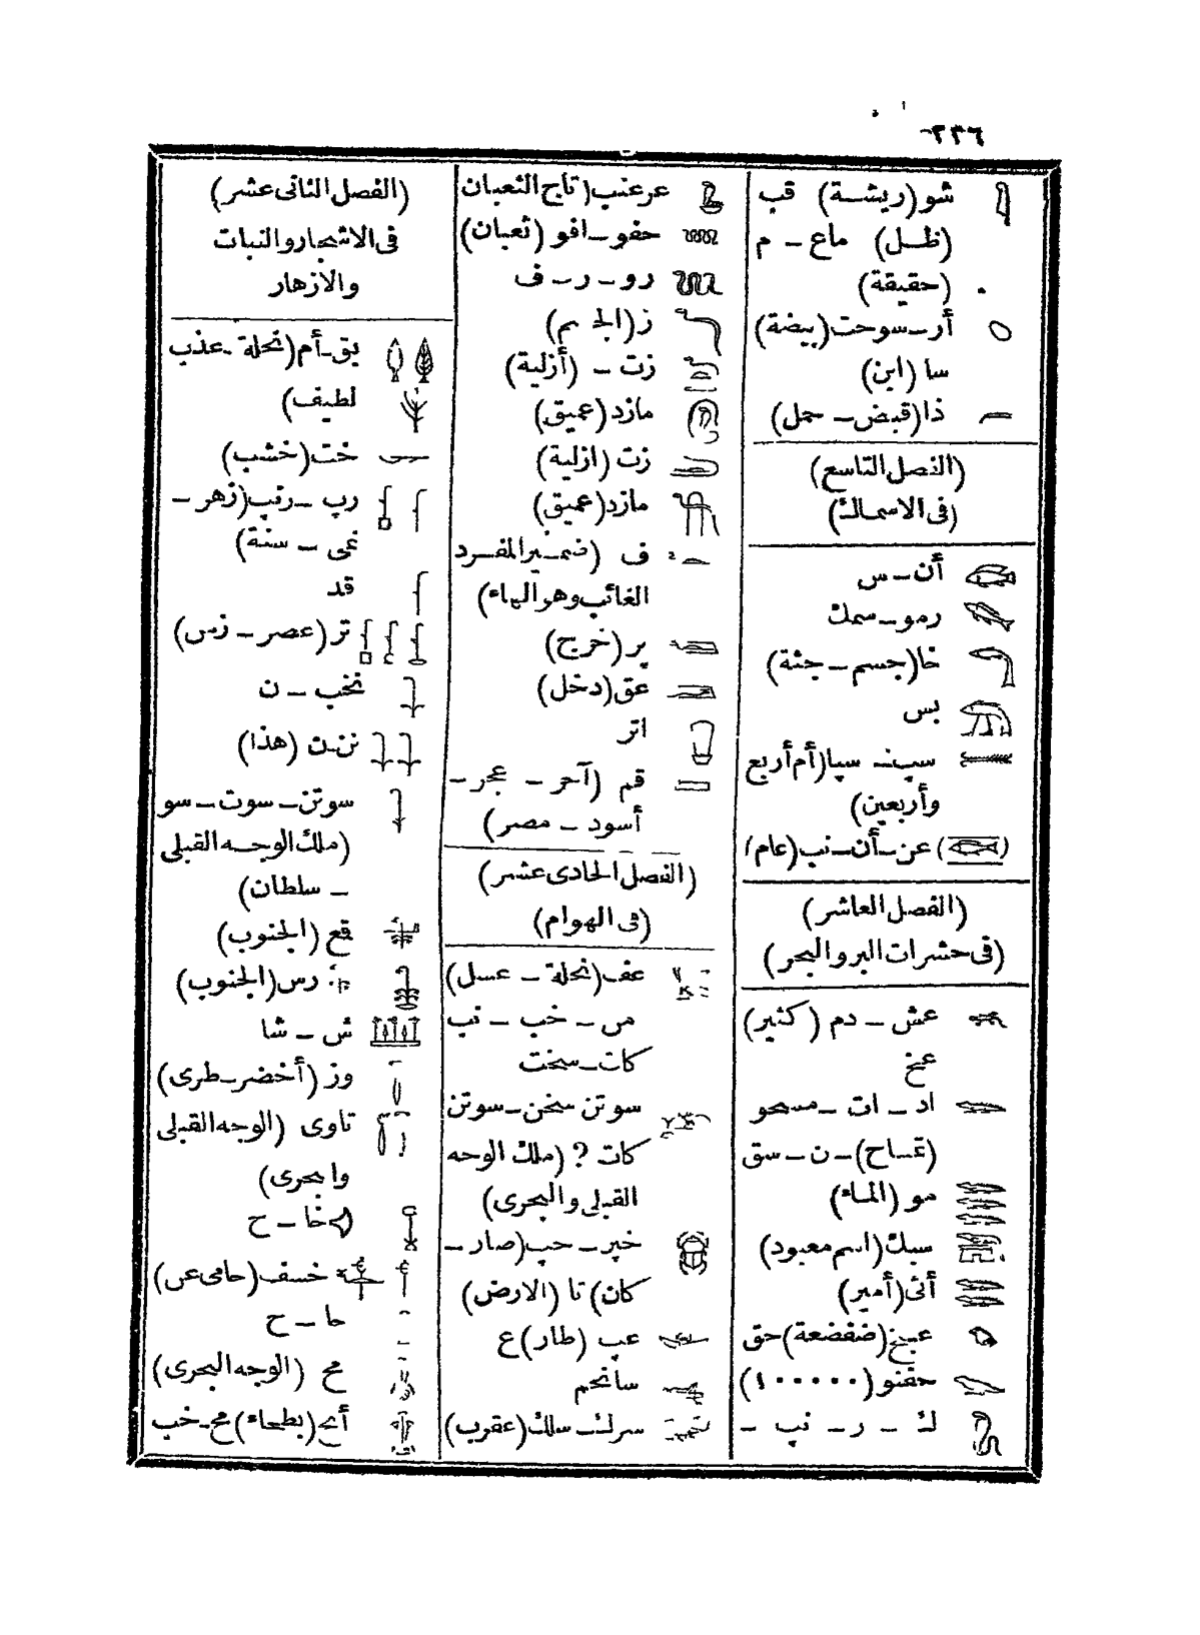 ٢٣٦
شو (ريشة) قب
(ظل) ماع - م
(حقيقة)
أر - سوحت (بيضة)
سا (ابن)
ذا (قبض - حمل)
(الفصل التاسع)
(فى الاسماك)
أن - س
رمو - سمك
خا (جسم - جثة)
بس
سپت - سپا (أم أربع
وأربعين)
عن - أن - نب (عام)
(الفصل العاشر)
(فى حشرات البر والبحر)
عش - دم (كثير)
عنخ
اد - ات - مسحو
(تمساح) - ن - سق
مو (الماء)
سبك (اسم معبود)
أتى (أمير)
عبخ (ضفضعة) حق
حفنو (١٠٠٠٠٠)
ك - ر - نپ -
عرعنب (تاج الثعبان
حفو - افو (ثعبان)
رو - ر - ف
ز (الجسم)
زت - (أزلية)
مازد (عميق)
زت (ازلية)
مازد (عميق)
ف (ضمير المفرد
الغائب وهو الهاء)
پر (خرج)
عق (دخل)
اتر
قم (آحر - عجر -
أسود - مصر)
(الفصل الحادى عشر)
(فى الهوام)
عف (نحلة - عسل)
مس - خب - نب
كات - سخت
سوتن سخن - سوتن
كات ? (ملك الوجه
القبلى والبحرى)
خپر - حب (صار -
كان) تا (الارض)
عپ (طار) ع
سانحم
سرك - سلك (عقرب)
(الفصل الثانى عشر)
فى الاشجار والنبات
والازهار
بق - أم (نخلة - عذب
لطيف)
خت (خشب)
رپ - رنپ (زهر -
نمى - سنة)
قد
تر (عصر - زمن)
نخب - ن
نن - ن (هذا)
سوتن - سوت - سو
(ملك الوجه القبلى
- سلطان)
قمع (الجنوب)
رس (الجنوب)
ش - شا
وز (أخضر - طرى)
تاوى (الوجه القبلى
والبحرى)
خا - ح
خسف (حامى عن)
حا - ح
مح (الوجه البحرى)
أدح (بطحاء) مح - خب